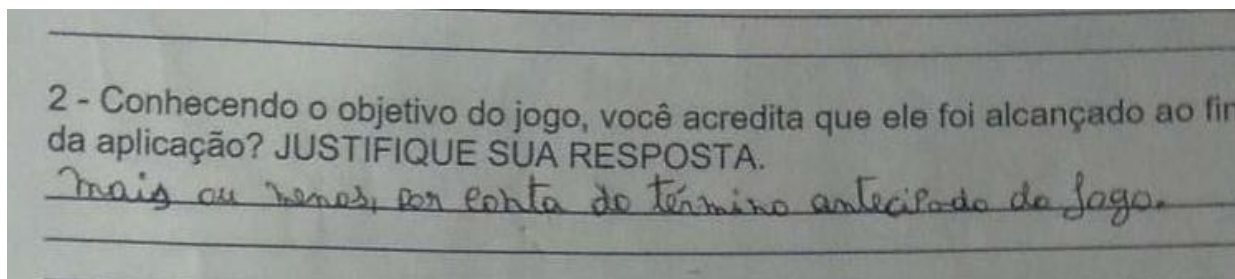 2 - Conhecendo o objetivo do jogo, você acredita que ele foi alcançado ao fin
da aplicação? JUSTIFIQUE SUA RESPOSTA.
Mais ou menos, por conta do término antecipado do jogo.